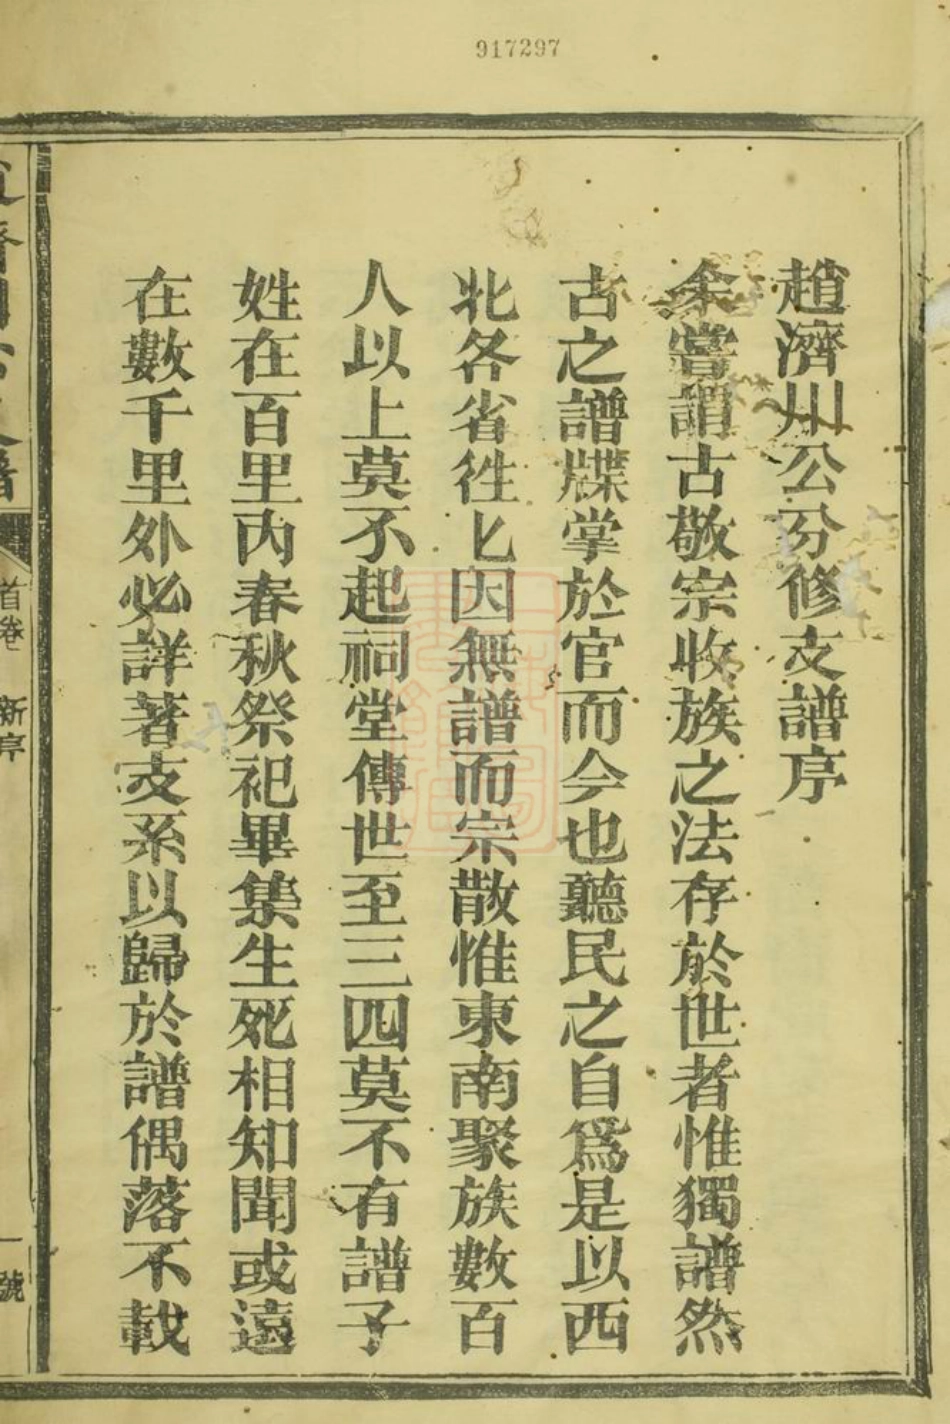 917297
趙濟州公分修支譜序
余嘗謂古敬宗收族之法存於世者惟獨譜然
古之譜牒掌於官而今也聽民之自爲是以西
北各省徃匕因無譜而宗散惟東南聚族數百
人以上莫不起祠堂傳世至三四莫不有譜子
姓在百里內春秋祭祀畢集生死相知聞或遠
在數千里外必詳著支系以歸於譜偶落不載
首卷 新序
一號